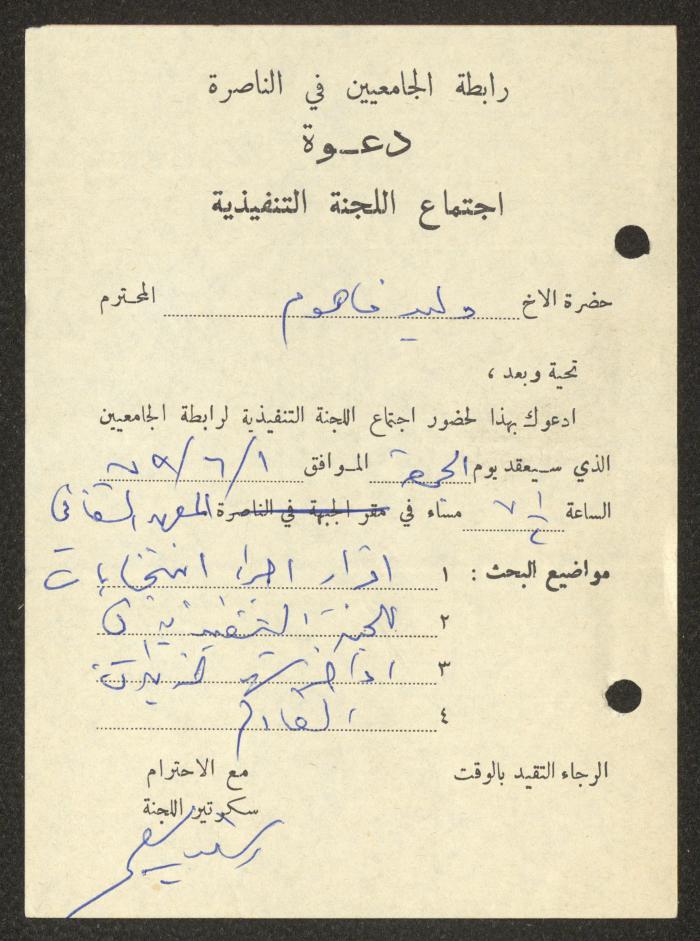 رابطة الجامعيين في الناصرة
دعـوة
اجتماع اللجنة التنفيذية
حضرة الاخ وليد فاهوم المحترم
تحية وبعد ،
ادعوك بهذا لحضور اجتماع اللجنة التنفيذية لرابطة الجامعيين
الذي سيعقد يوم الجمعة الموافق ١/٦/٧٩
الساعة ٧ مساء في مقر الجبهة في الناصرة المعهد الثقافي
مواضيع البحث : ١ اقرار اجراء انتخابات
٢ للجنة التنفيذية في
٣ اواخر شهر حزيران
٤ القادم
الرجاء التقيد بالوقت
مع الاحترام
سكرتير اللجنة